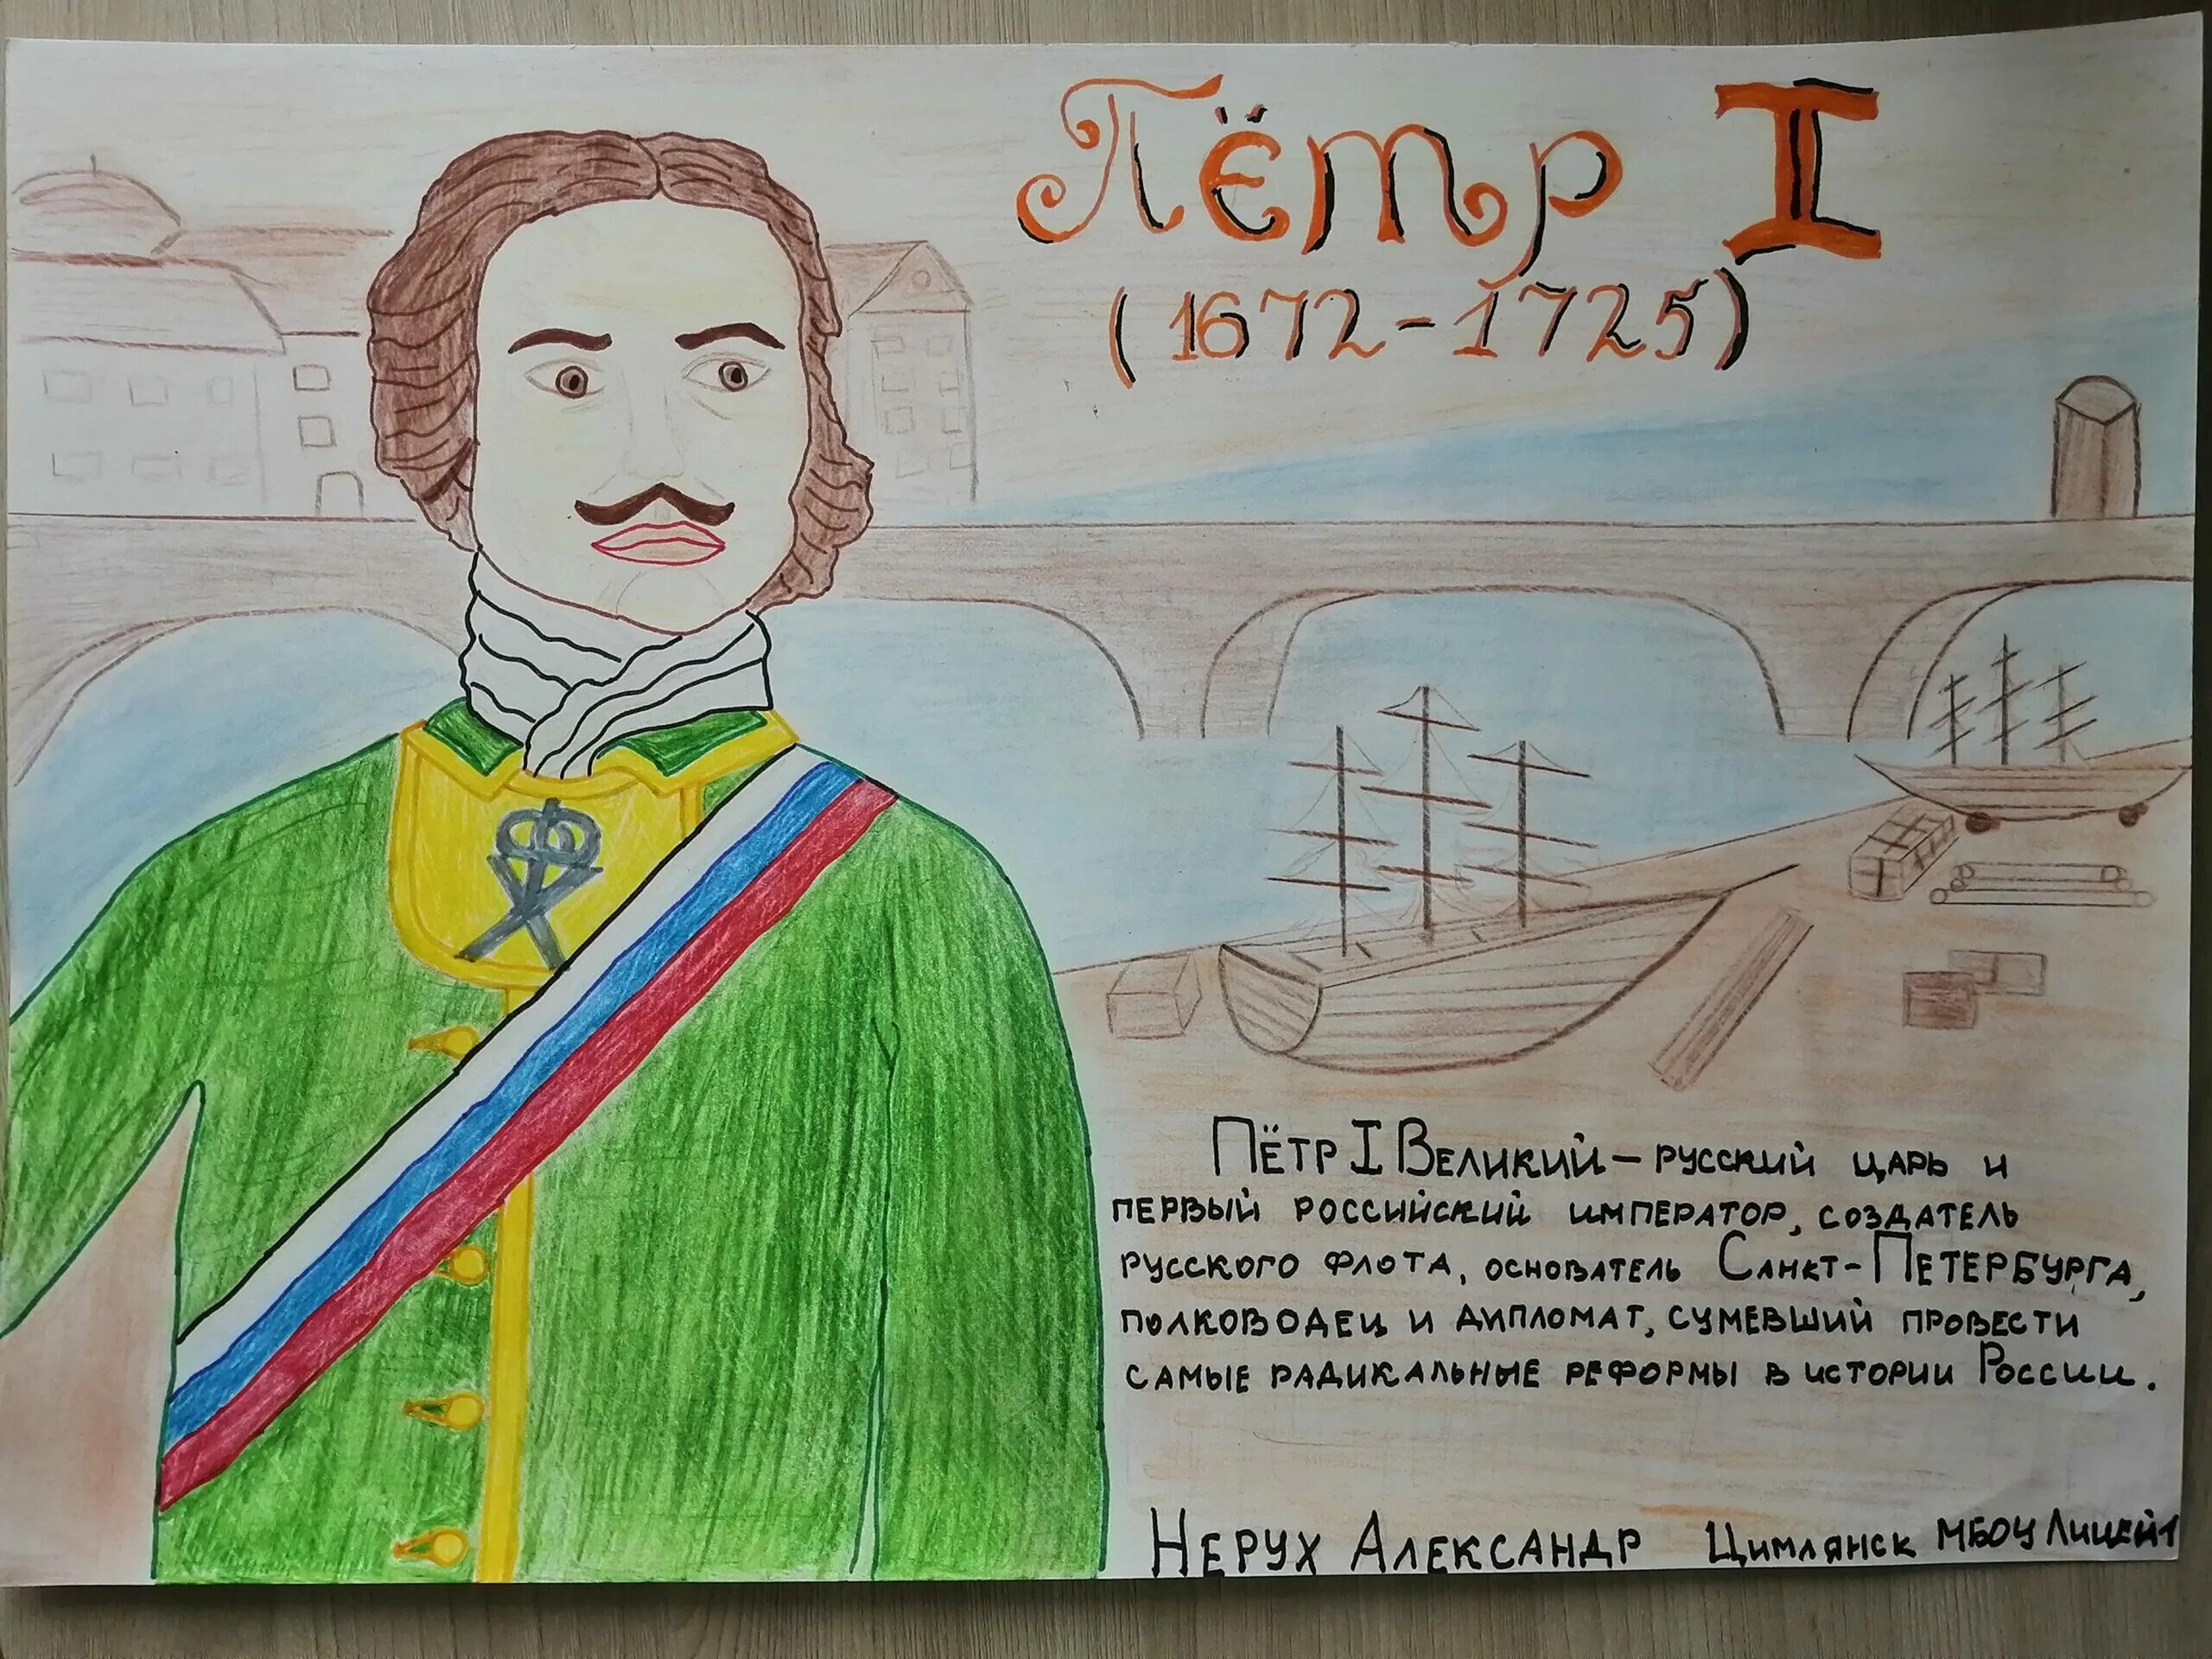 Пётр I
(1672-1725)
Пётр I Великий - русский царь и
первый российский император, создатель
русского флота, основатель Санкт-Петербурга,
полководец и дипломат, сумевший провести
самые радикальные реформы в истории России.
Нерух Александр Цимлянск МБОУ Лицей 1